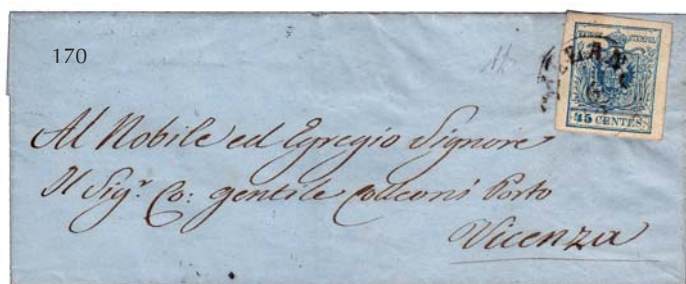 170
MILANO
45 CENTES
Al Nobile ed Egregio Signore
Il Sigr. Co: gentile Colleoni Porto
Vicenza